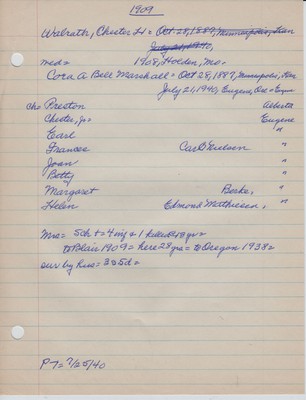 1909
Walrath, Chester H = Oct 28, 1887, Minneapolis, Kan
July 21, 1940,
md = 1908, Holden, Mo =
Cora A Bell Marshall = Oct 28, 1887, Minneapolis, Kan
July 21, 1940, Eugene, Ore =
ch = Preston Alberta
Chester, Jr = Eugene
Earl "
Frances Carl Nielsen "
Joan "
Betty "
Margaret Burke, "
Helen Edmond Mathiesen, "
Mrs = 5ch + = 4 inf = 1 killed @ 18 yrs =
to Blair 1909 = here 28 yrs = to Oregon 1938 =
sur by hus = 3s 5d =
P T = 7/25/40